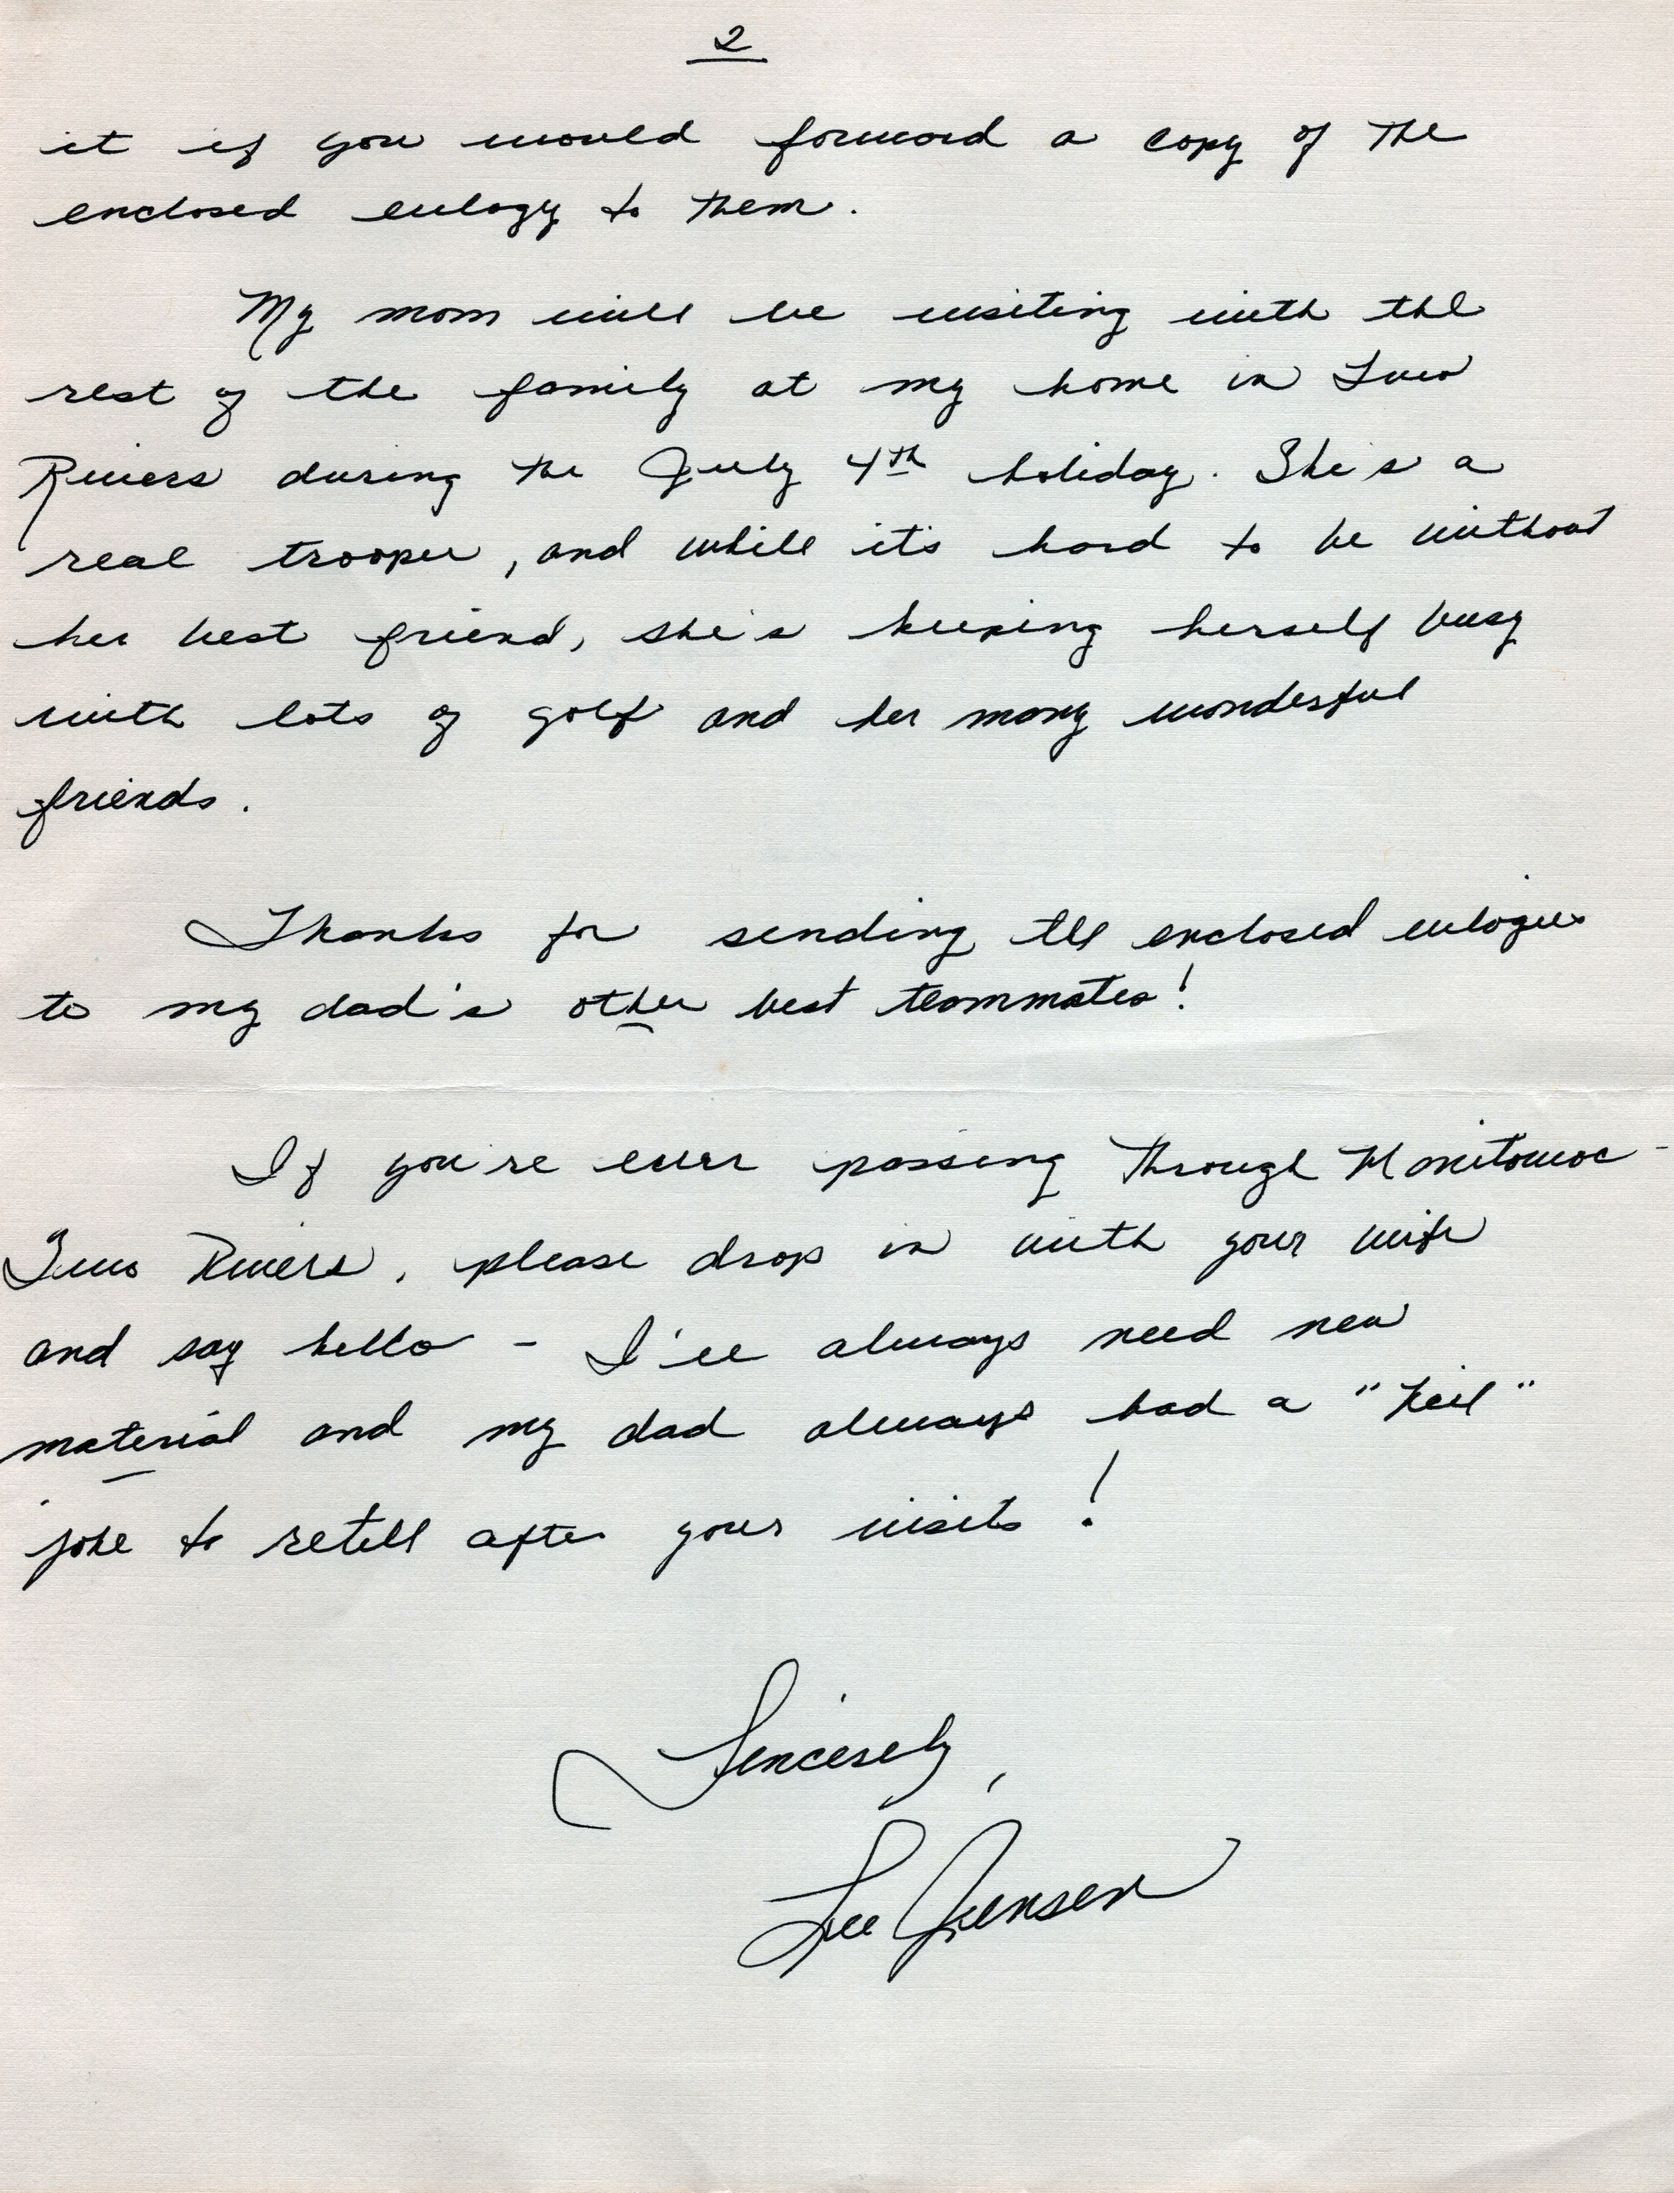 2
it if you would forward a copy of the
enclosed eulogy to them.
My mom will be visiting with the
rest of the family at my home in Two
Rivers during the July 4th holiday. She's a
real trooper, and while it's hard to be without
her best friend, she's keeping herself busy
with lots of golf and her many wonderful
friends.
Thanks for sending the enclosed eulogies
to my dad's other best teammates!
If you're ever passing through Manitowoc-
Two Rivers, please drop in with your wife
and say hello - I'll always need new
material and my dad always had a "Keil"
joke to retell after your visits!
Sincerely,
Lee Jensen